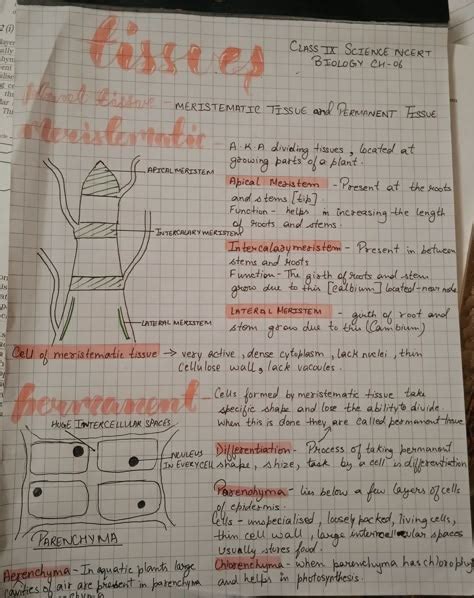 tissues
CLASS IX SCIENCE NCERT
BIOLOGY CH-06
plant tissue - MERISTEMATIC TISSUE and PERMANENT TISSUE
meristematic -
A.K.A dividing tissues, located at
growing parts of a plant.
APICAL MERISTEM
INTERCALARY MERISTEM
LATERAL MERISTEM
Apical Meristem - Present at the roots
and stems [tip].
Function - helps in increasing the length
of roots and stems.
Intercalary meristem - Present in between
stems and roots
Function - The girth of roots and stem
grow due to this [calbium] located near node
LATERAL MERISTEM - girth of root and
stem grow due to this (Cambium)
Cell of meristematic tissue → very active, dense cytoplasm, lack nuclei, thin
cellulose wall, lack vacuoles.
permanent -
Cells formed by meristematic tissue take
specific shape and lose the ability to divide
when this is done they are called permanent
HUGE INTERCELLULAR SPACES
NUCLEUS
IN EVERY CELL
PARENCHYMA
Differentiation - Process of taking permanent
shape, shize, task by a cell is differentiation
Parenchyma - lies below a few layers of cells
of epidermis.
Cells - unspecialised, loosely packed, living cells,
thin cell wall, large intercellular spaces
Usually stores food.
Aerenchyma - In aquatic plants large
cavities of air are present in parenchyma
Chlorenchyma - when parenchyma has chloroph
and helps in photosynthesis.